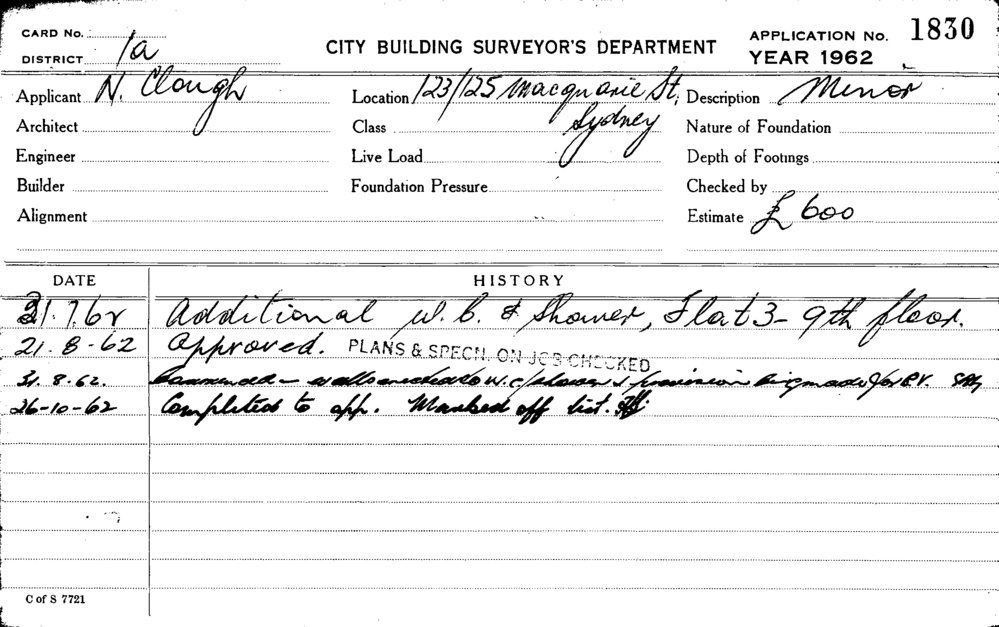 CARD No.
DISTRICT 1a
CITY BUILDING SURVEYOR'S DEPARTMENT
APPLICATION No. 1830
YEAR 1962
Applicant N. Clough
Location 123/125 Macquarie St, Sydney
Description Minor
Architect
Class
Nature of Foundation
Engineer
Live Load
Depth of Footings
Builder
Foundation Pressure
Checked by
Alignment
Estimate £600
DATE HISTORY
31.7.62 Additional W.C. & Shower, Flat 3 - 9th floor.
21-8-62 Approved. PLANS & SPECN. ON JOB CHECKED
31.8.62. Commenced - walls erected to W.C/shower & provision being made for
26-10-62 Completed to app. Marked off list.
C of S 7721